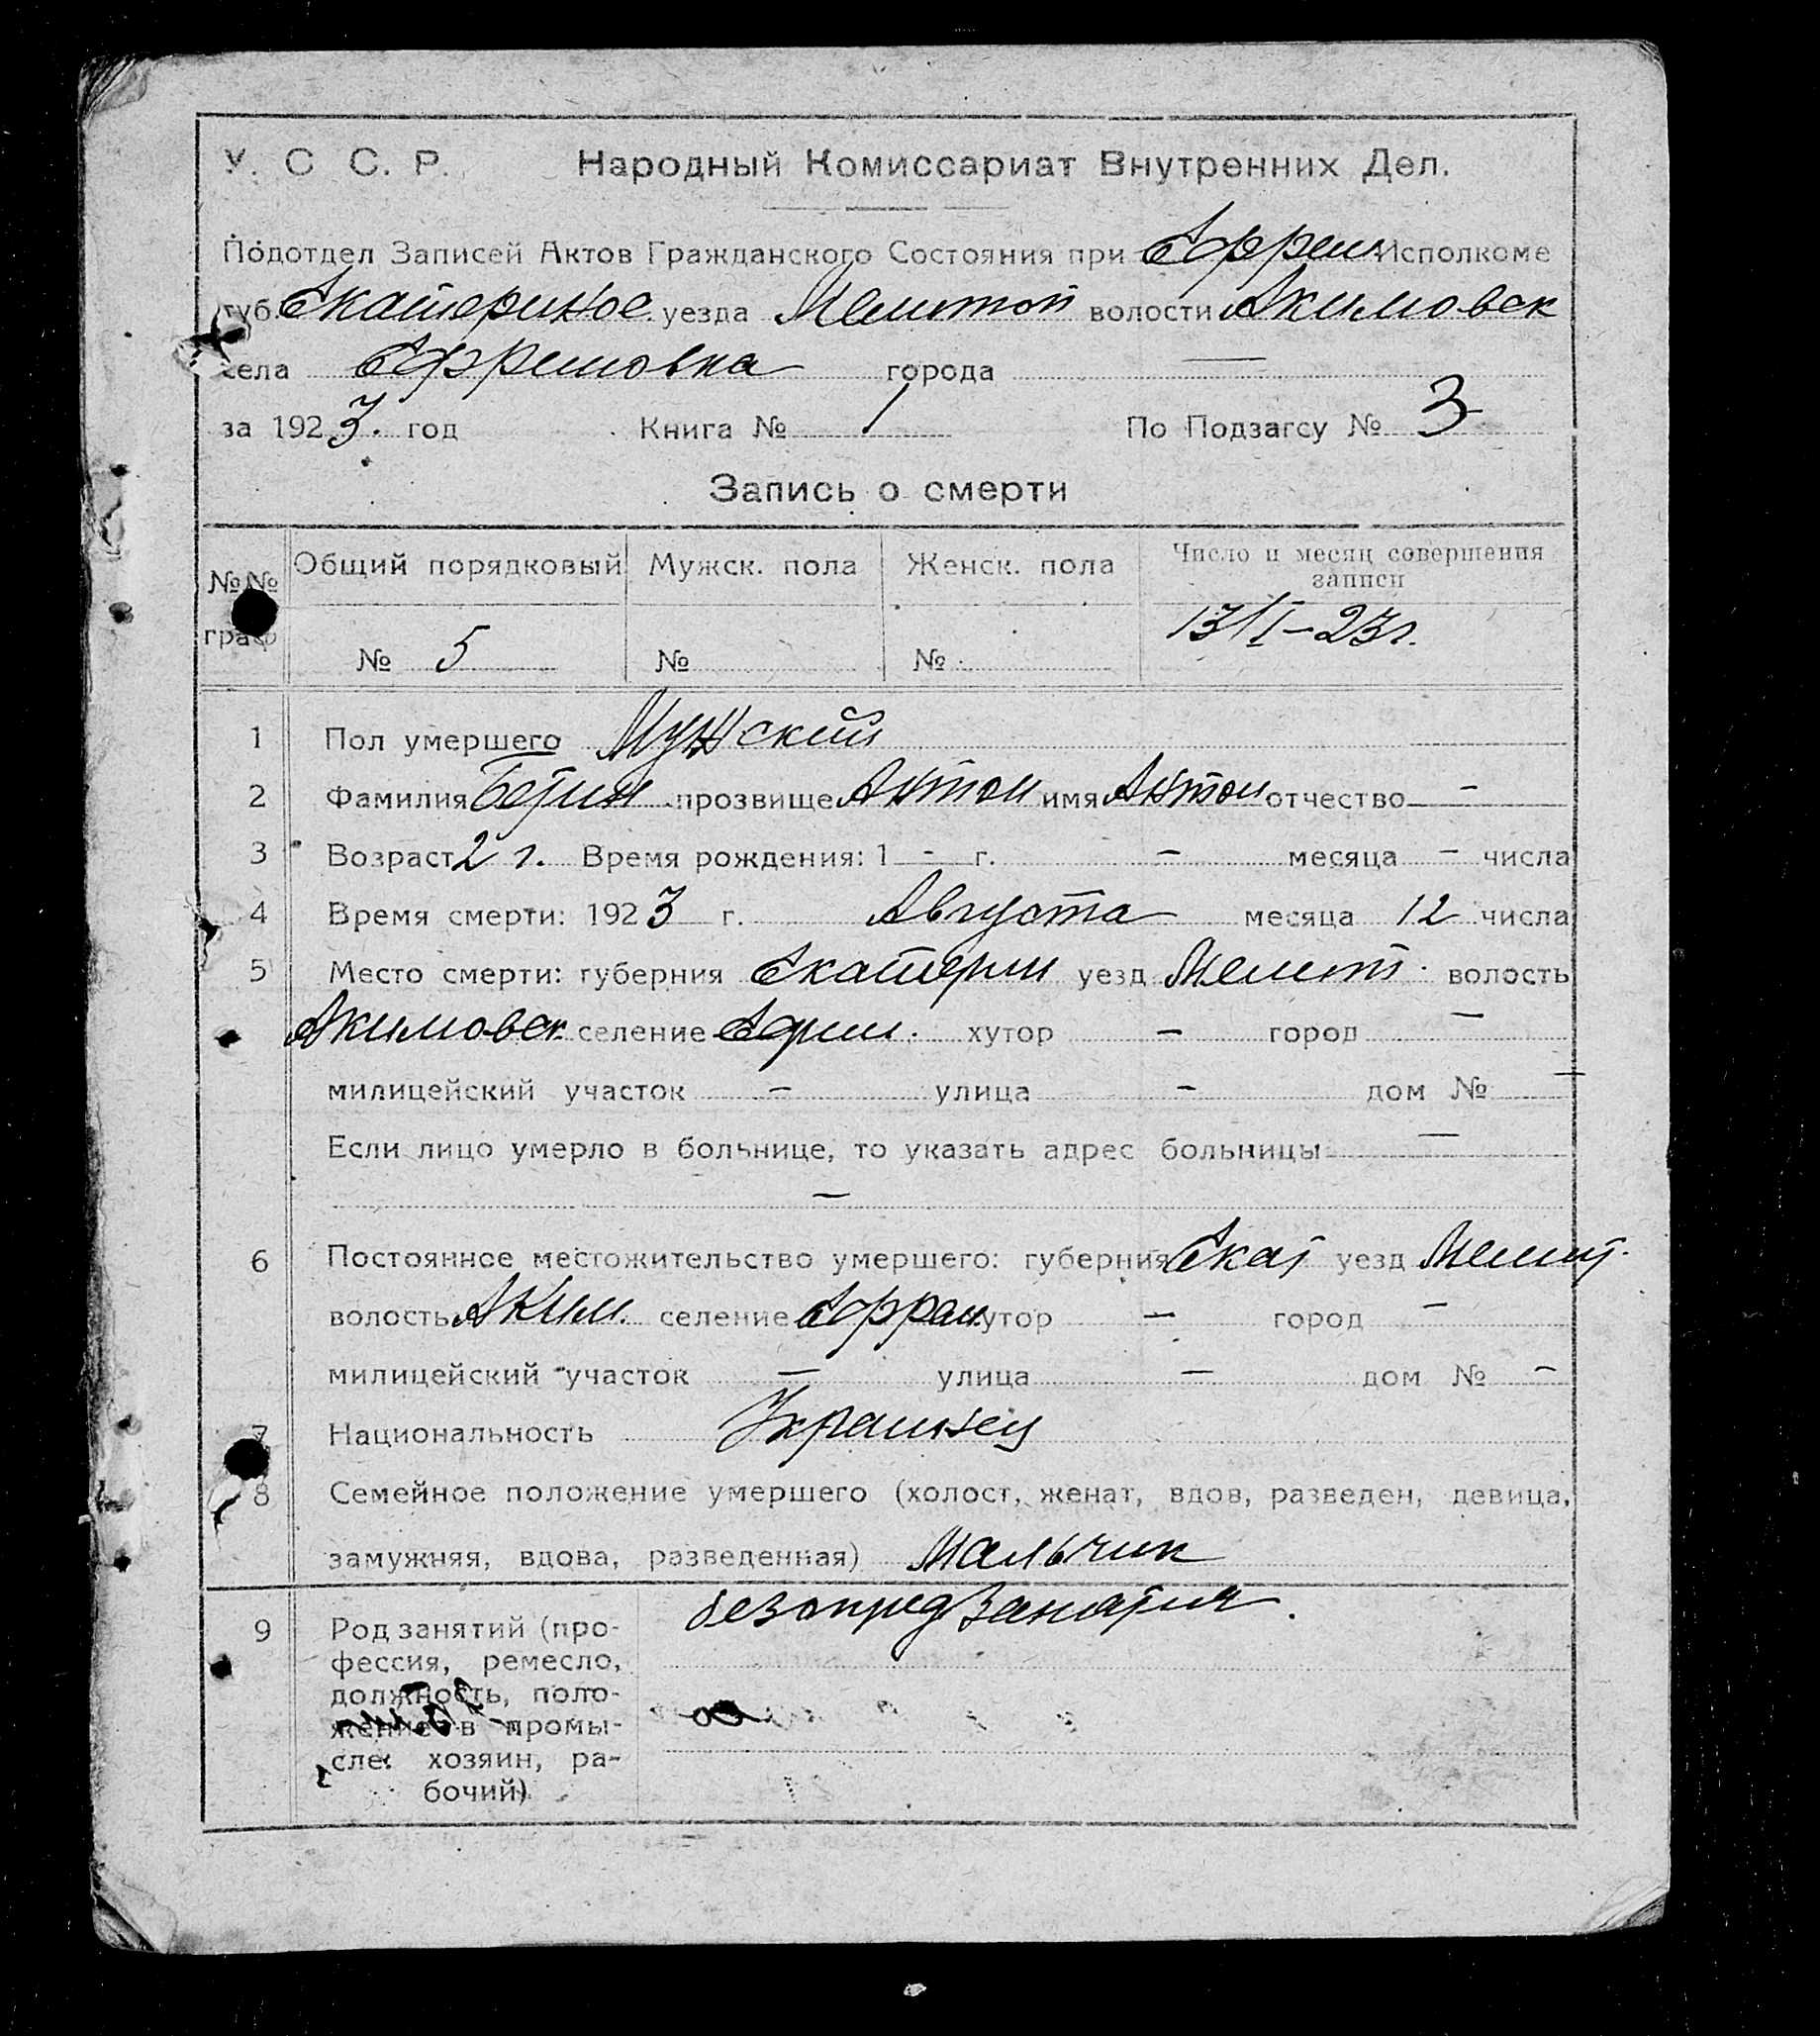 У. С С. Р. Народный Комиссариат Внутренних Дел.
Подотдел Записей Актов Гражданского Состояния при Ефрем Исполкоме
губ. Екатеринос. уезда Мелитоп волости Акимовск
села Ефремовка города —
за 1923. год Книга № 1 По Подзагсу № 3
Запись о смерти
№№ граф Общий порядковый Мужск. пола Женск. пола Число и месяц совершения записи
№ 5 № № 13/I–23г.
1 Пол умершего Мужский
2 Фамилия прозвище Антон имя Антон отчество –
3 Возраст 2 г. Время рождения: 1 - г. – месяца – числа
4 Время смерти: 1923 г. Августа месяца 12 числа
5 Место смерти: губерния Екатерин уезд Мелит. волость
Акимовск селение хутор – город —
милицейский участок – улица – дом № —
Если лицо умерло в больнице, то указать адрес больницы —
—
6 Постоянное местожительство умершего: губерния Екат уезд Мелит.
волость Аким. селение Ефрем хутор – город –
милицейский участок — улица — дом № –
7 Национальность Украинец
8 Семейное положение умершего (холост, женат, вдов, разведен, девица,
замужняя, вдова, разведенная) Мальчик
9 Род занятий (про- без опред занятия.
фессия, ремесло,
должность, поло-
жение в промы-
сле: хозяин, ра-
бочий)